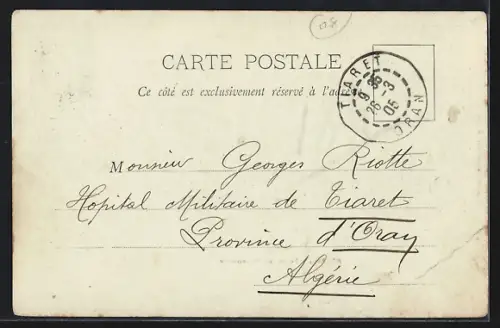 08
CARTE POSTALE
Ce côté est exclusivement réservé à l'adre
TIARET
26-3
05
ORAN
Monsieur Georges Riotte
Hopital Militaire de Tiaret
Province d'Oran
Algérie